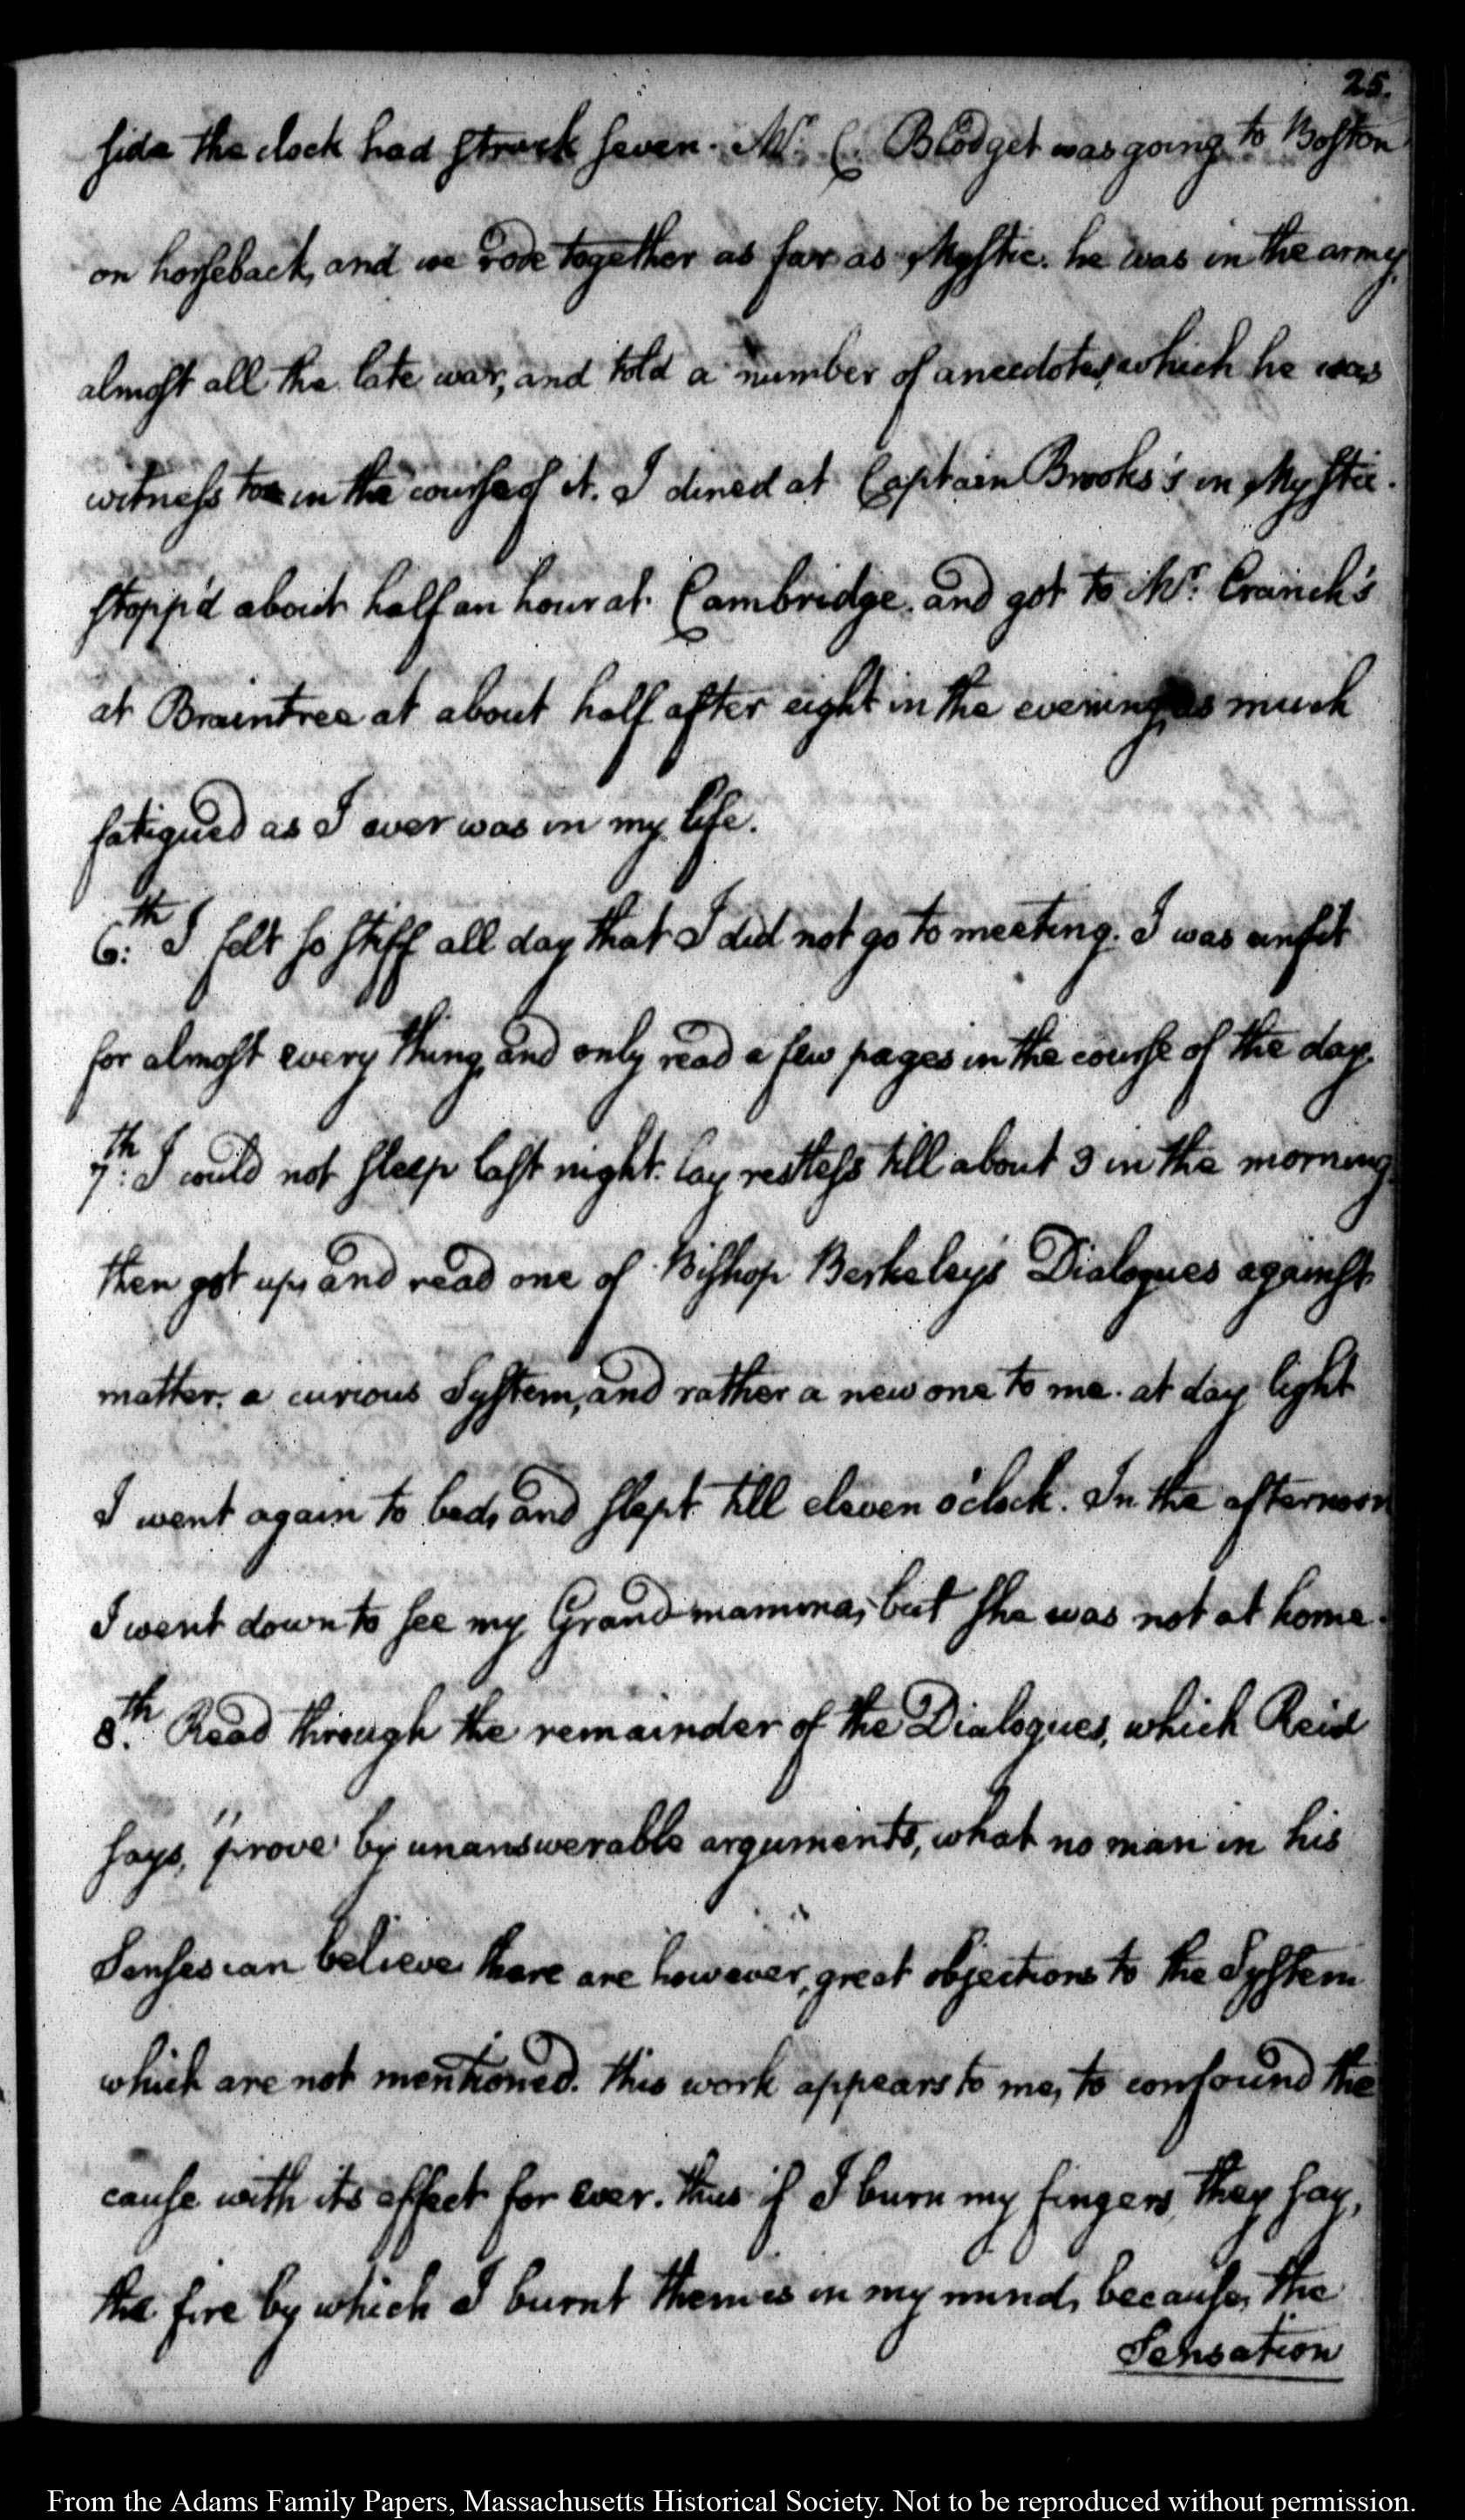 25.
side the clock had struck seven. Mr. C. Blodget was going to Boston
on horseback, and we rode together as far as Mystic. he was in the army,
almost all the late war, and told a number of anecdotes, which he was
witness to in the course of it. I dined at Captain Brooks's in Mystic.
stopp'd about half an hour at Cambridge, and got to Mr. Cranch's
at Braintree at about half after eight in the evening, as much
fatigued as I ever was in my life.
6.th I felt so stiff all day that I did not go to meeting. I was unfit
for almost every thing, and only read a few pages in the course of the day.
7.th I could not sleep last night. lay restless till about 3 in the morning.
then got up, and read one of Bishop Berkeley's Dialogues against
matter. a curious System, and rather a new one to me. at day light
I went again to bed, and slept till eleven o'clock. In the afternoon
I went down to see my Grand-mamma, but she was not at home.
8.th Read through the remainder of the Dialogues, which Reid
says, "prove by unanswerable arguments, what no man in his
Senses can believe. there are however, great objections to the System
which are not mentioned. this work appears to me, to confound the
cause with its effect for ever. thus if I burn my fingers, they say,
the fire by which I burnt them is in my mind, because, the
Sensation
From the Adams Family Papers, Massachusetts Historical Society. Not to be reproduced without permission.